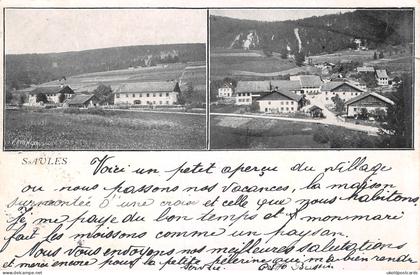 SAULES
Voici un petit aperçu du village
ou nous passons nos vacances, la maison
surmontée d'une croix et celle que nous habitons,
Je me paye du bon temps et mon mari
fait les moissons comme un paysan.
Nous vous envoyons nos meilleures salutations
et merci encore pour la petite pelerine qui m'a bien rendu
Service.